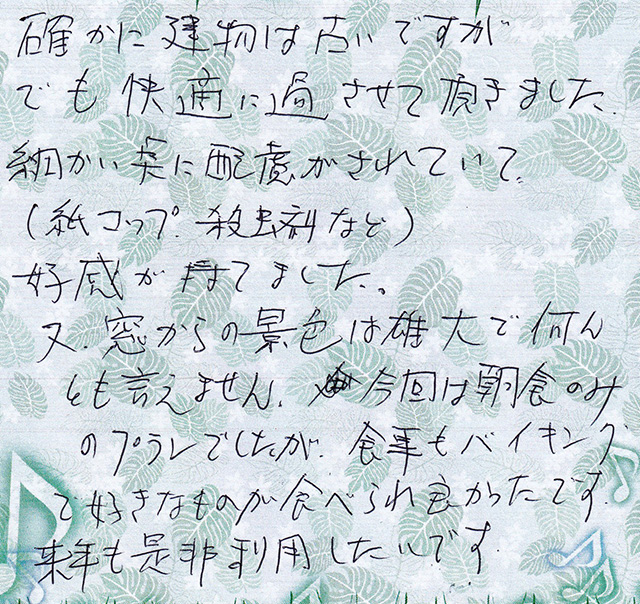 確かに建物は古いですが
でも快適に過させて頂きました.
細かい点に配慮がされていて.
(紙コップ.殺虫剤など)
好感が持てました。
又.窓からの景色は雄大で何ん
とも言えません.今回は朝食のみ
のプランでしたが.食事もバイキング
で好きなものが食べられ良かったです.
来年も是非利用したいです.